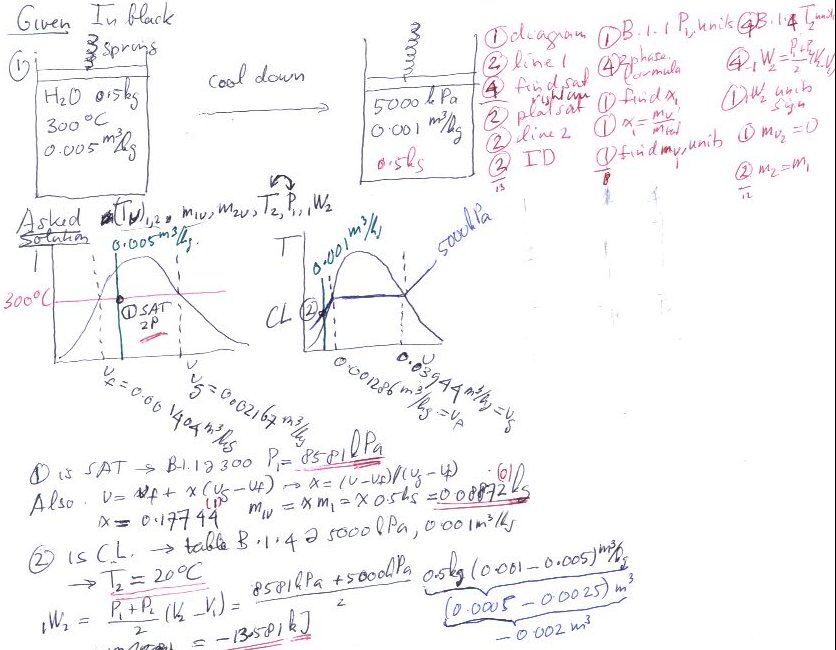 Given In black
① springs
H₂O 0.5kg
300°C
0.005 m³/kg
cool down
5000 kPa
0.001 m³/kg
0.5kg
① diagram
② line 1
④ find sat
② plot sat
② line 2
② ID
13
① B.1.1 P₁, units
④ 2phase formula
① find x₁
① x₁ = mv/mtot
① find mv₁, units
8
④ B.1.4 T₂ units
④ ₁W₂ = P₁+P₂/2
① W₂ units sign
① mv₂=0
② m₂=m₁
12
Asked (Tv)₁,₂, m₁v, m₂v, T₂, P₁, ₁W₂
Solution
0.005 m³/kg
300°C
① SAT
2P
vf = 0.001404 m³/kg
vg = 0.02167 m³/kg
T
0.001 m³/kg
5000 kPa
CL ②
v
0.001286 m³/kg = vf
0.03944 m³/kg = vg
① is SAT → B.1.1 @ 300 P₁ = 8581 kPa
Also v = vf + x(vg - vf) → x = (v-vf)/(vg-vf)
x = 0.17744 m₁v = x m₁ = x 0.5kg = 0.08872 kg
② is C.L. → table B.1.4 @ 5000 kPa, 0.001 m³/kg
→ T₂ = 20°C
₁W₂ = P₁+P₂/2 (V₂ - V₁) = 8581 kPa + 5000 kPa/2 0.5kg (0.001 - 0.005) m³/kg
(0.0005 - 0.0025) m³
-0.002 m³
= -13.581 kJ